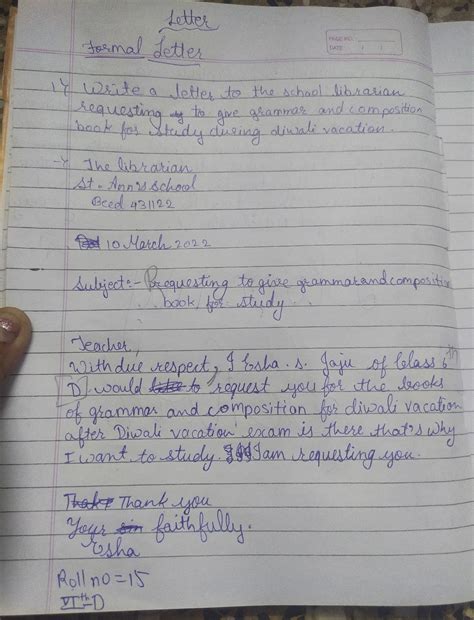 Letter
PAGE NO.:
DATE: / /
Formal Letter
1) Write a letter to the school librarian
requesting to give grammar and composition
book for study during diwali vacation.
→ The librarian
St. Ann's school
Beed 431122
10 March 2022
Subject:- Requesting to give grammar and composition
book for study.
Teacher,
With due respect, I Esha. S. Jaju of Class 6th
D would request you for the books
of grammar and composition for diwali vacation
after Diwali vacation exam is there that's why
I want to study. I am requesting you.
Thank you
Your faithfully.
Esha
Roll no=15
VIth-D